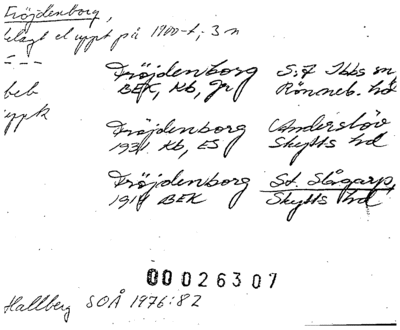 Fröjdenborg,
belägt el uppt på 1900-t; 3 n
beb
uppk
Fröjdenborg S:t Ibbs sn
BEK, Kb, Gr Rönneb. hd
Fröjdenborg Anderslöv
1931 Kb, ES Skytts hd
Fröjdenborg St. Slågarp,
1914 BEK Skytts hd
00 026307
Hallberg SOÅ 1976:82